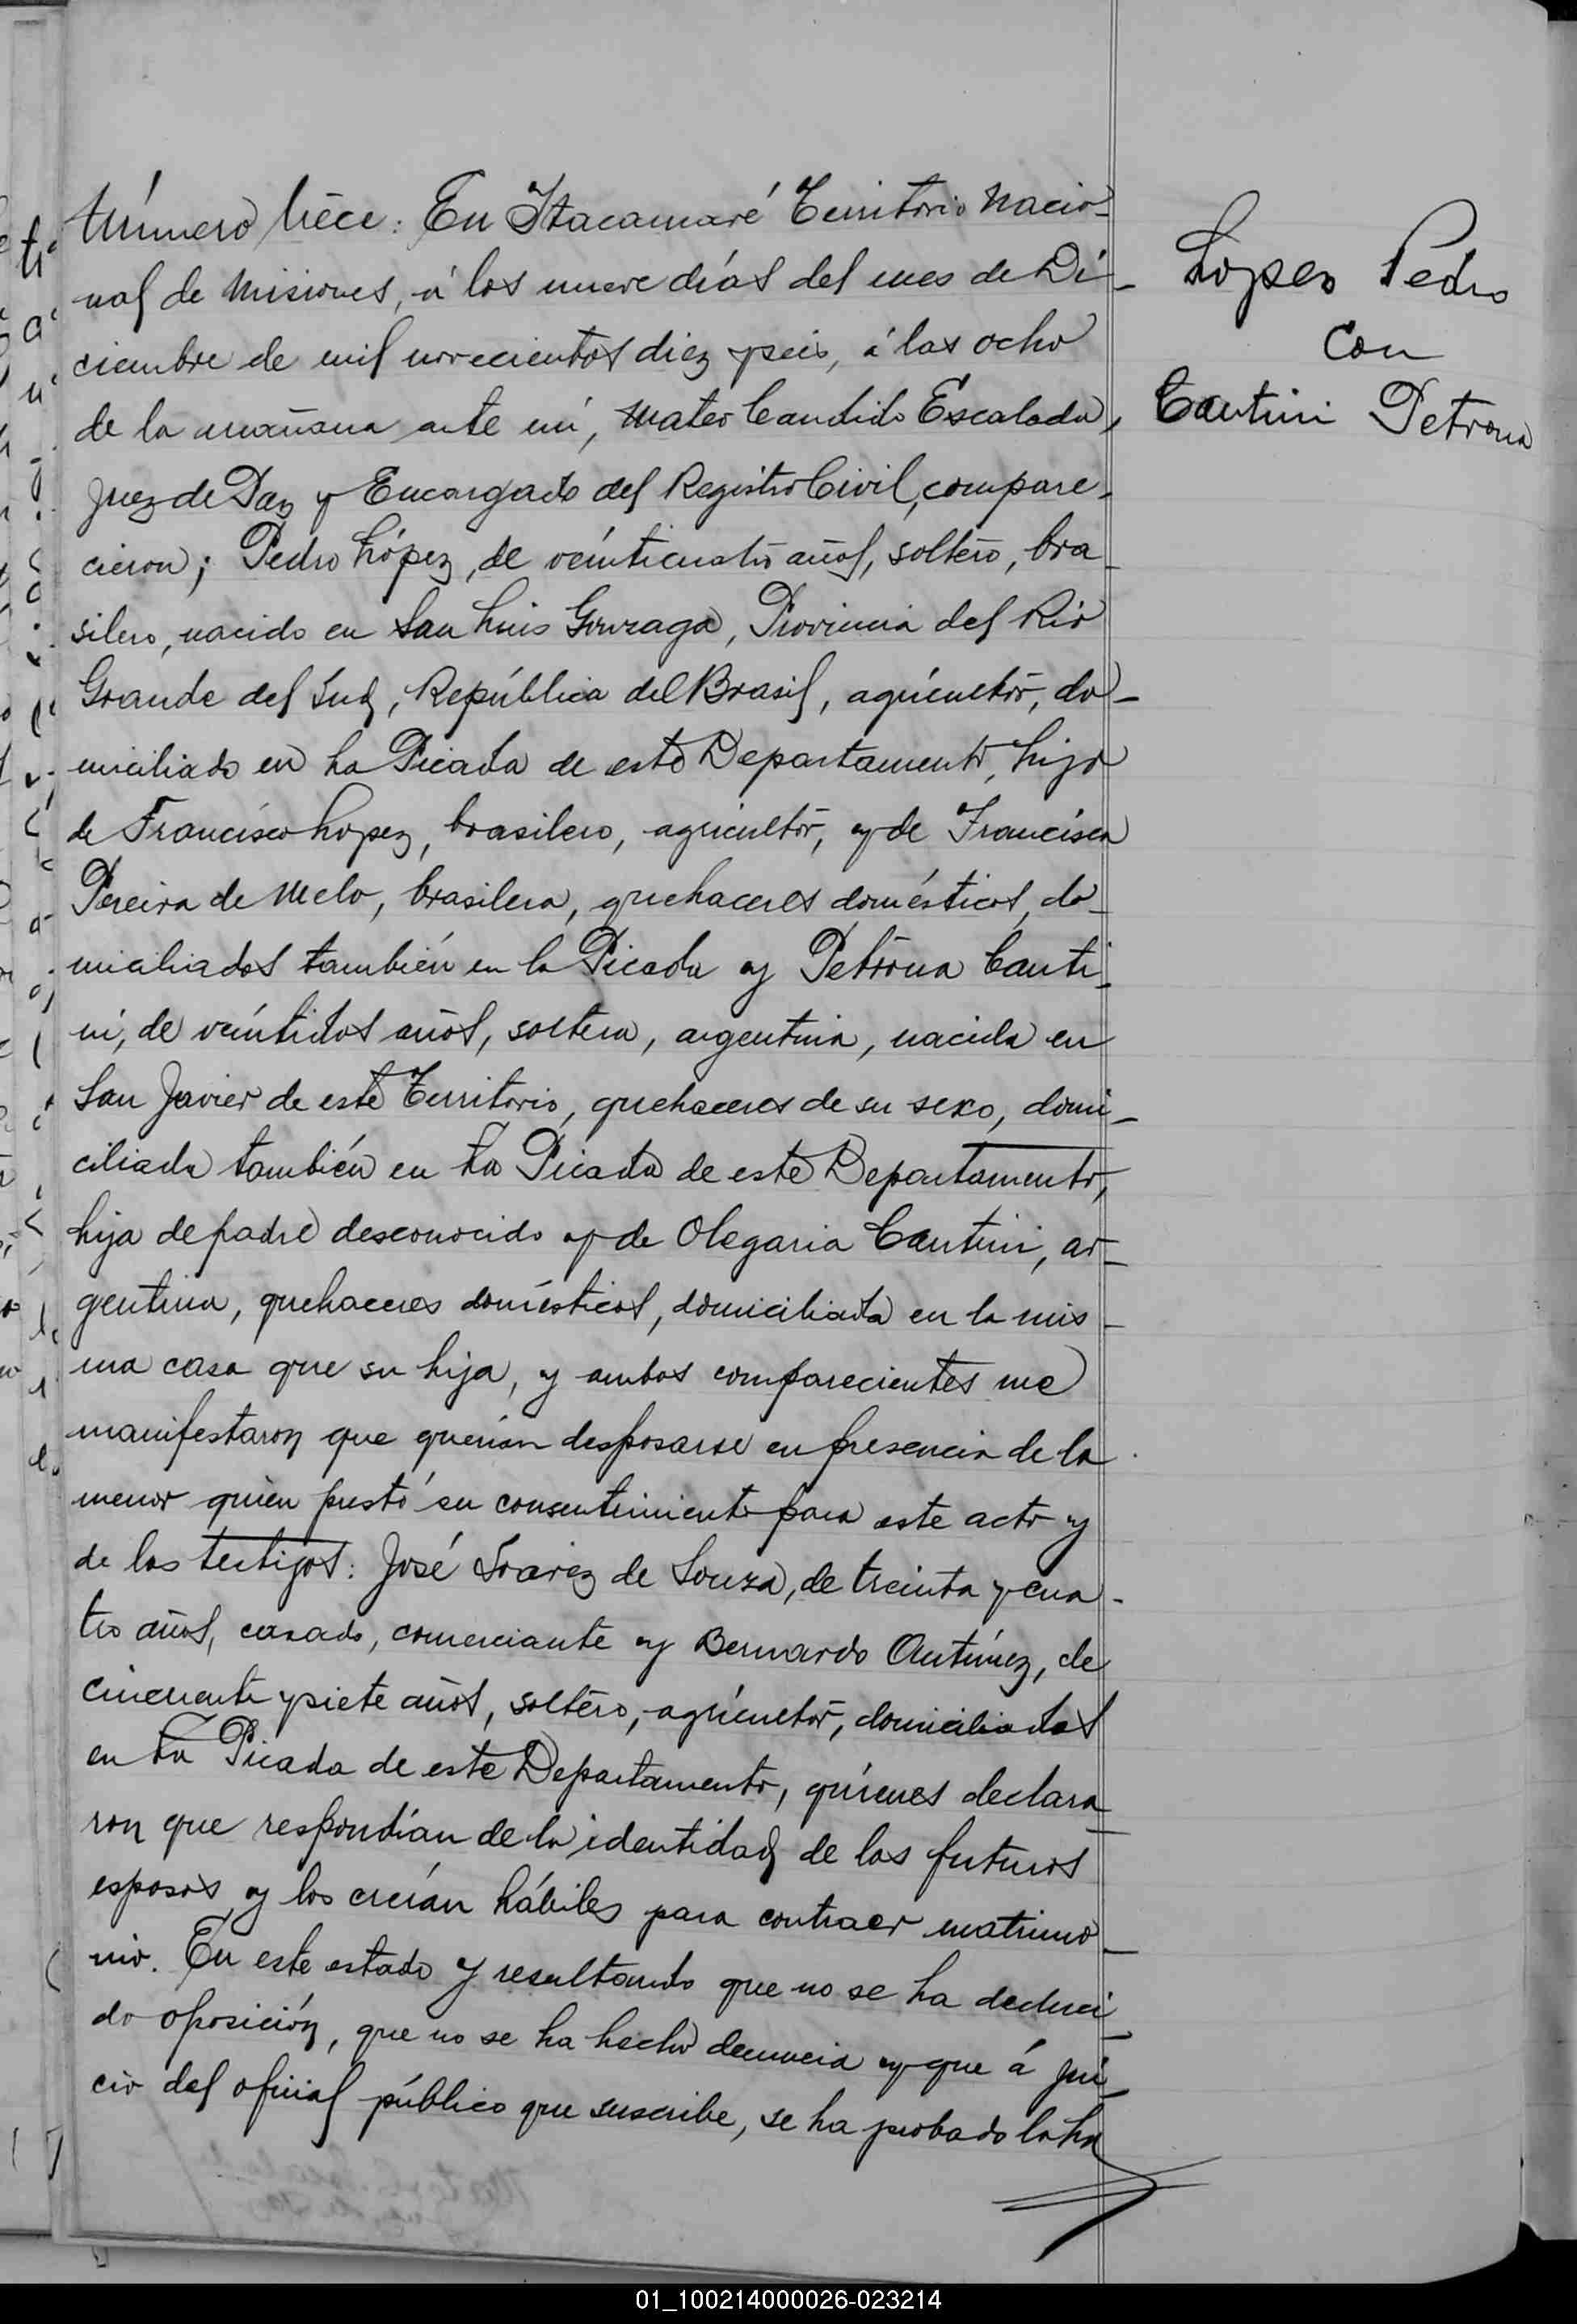 Número trece: En Itacamaré Territorio Nacio-
nal de Misiones, á los nueve días del mes de Di-
ciembre de mil novecientos diez y seis, á las ocho
de la mañana ante mí, Mateo Candido Escalada,
Juez de Paz y Encargado del Registro Civil, compare-
cieron; Pedro López, de veinticuatro años, soltero, bra-
silero, nacido en San Luis Gonzaga, Provincia del Rio
Grande del Sud, República del Brasil, agricultor, do-
miciliado en La Picada de este Departamento, hijo
de Francisco Lopez, brasilero, agricultor, y de Francisca
Pereira de Melo, brasilera, quehaceres domésticos, do-
miciliados también en la Picada y Petrona Canti-
ni, de veintidos años, soltera, argentina, nacida en
San Javier de este Territorio, quehaceres de su sexo, domi-
ciliada también en La Picada de este Departamento,
hija de padre desconocido y de Olegaria Cantini, ar-
gentina, quehaceres domésticos, domiciliada en la mis-
ma casa que su hija, y ambos comparecientes me
manifestaron que querían desposarse en presencia de la
menor quien prestó su consentimiento para este acto y
de los testigos: José Soarez de Souza, de treinta y cua-
tro años, casado, comerciante y Bernardo Antúnez, de
cincuenta y siete años, soltero, agricultor, domiciliados
en La Picada de este Departamento, quienes declara-
ron que respondían de la identidad de los futuros
esposos y los creían hábiles para contraer matrimo-
nio. En este estado y resultando que no se ha deduci-
do oposición, que no se ha hecho denuncia y que á jui-
cio del oficial público que suscribe, se ha probado la ha
Lopes Pedro
con
Cantini Petrona
01_100214000026-023214